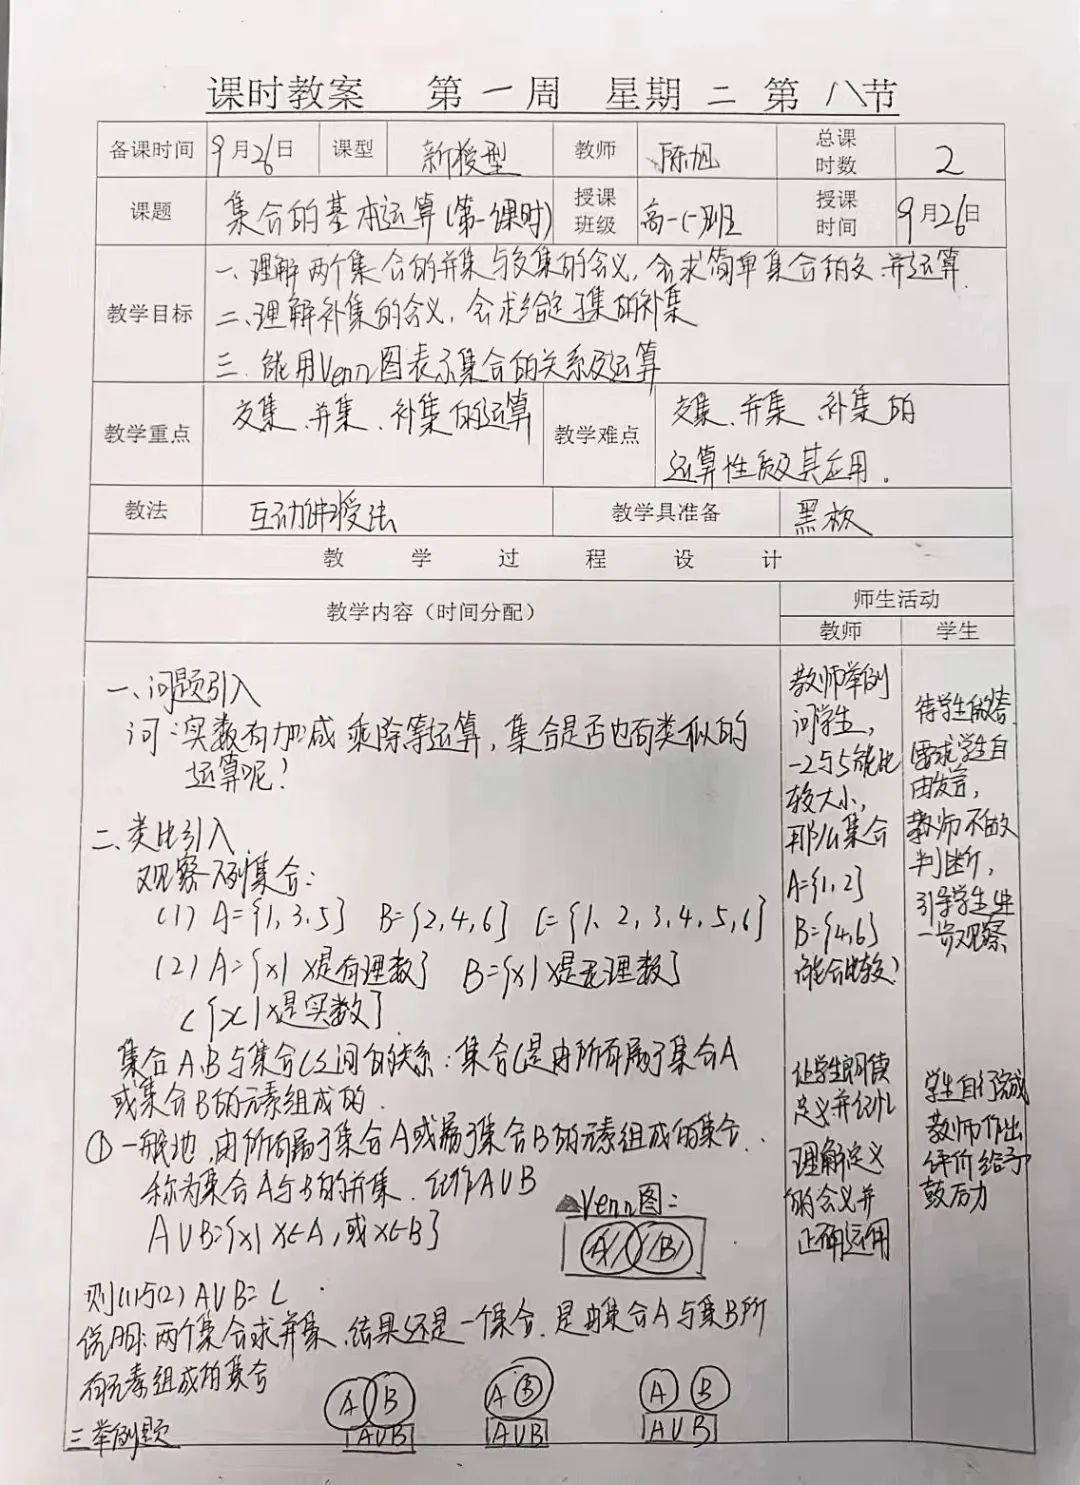 课时教案 第一周 星期二 第八节
备课时间 9月26日 课型 新授型 教师 陈旭 总课时数 2
课题 集合的基本运算(第一课时) 授课班级 高一(1)班 授课时间 9月26日
教学目标
一、理解两个集合的并集与交集的含义,会求简单集合的交.并运算.
二、理解补集的含义,会求给定子集的补集
三.能用Venn图表示集合的关系及运算
教学重点 交集、并集、补集的运算 教学难点 交集、并集、补集的
运算性质及其应用。
教法 互动讲授法 教学具准备 黑板
教学过程设计
教学内容(时间分配) 师生活动
教师 学生
一、问题引入
问:实数有加减乘除等运算,集合是否也有类似的
运算呢!
二、类比引入
观察下列集合:
(1) A={1,3,5} B={2,4,6} C={1、2,3,4,5,6}
(2) A={x|x是有理数} B={x|x是无理数}
C{x|x是实数}
集合A.B与集合C之间的关系:集合C是由所有属于集合A
或集合B的元素组成的.
① 一般地,由所有属于集合A或属于集合B的元素组成的集合.
称为集合A与B的并集.记作A∪B
A∪B={x|x∈A,或x∈B}
Venn图:
A B
则(1)与(2) A∪B=C
说明:两个集合求并集,结果还是一个集合.是由集合A与集B所
有元素组成的集合
A B A B A B
A∪B A∪B A∪B
三举例题
教师举例
问学生,
-2与5能比
较大小,
那么集合
A={1,2}
B={4,6}
能否比较?
让学生朗读
定义并记忆
理解定义
的含义并
正确运用
待学生做答
需求学生自
由发言,
教师不做
判断,
引导学生进
一步观察
学生自行完成
教师作出
评价给予
鼓励